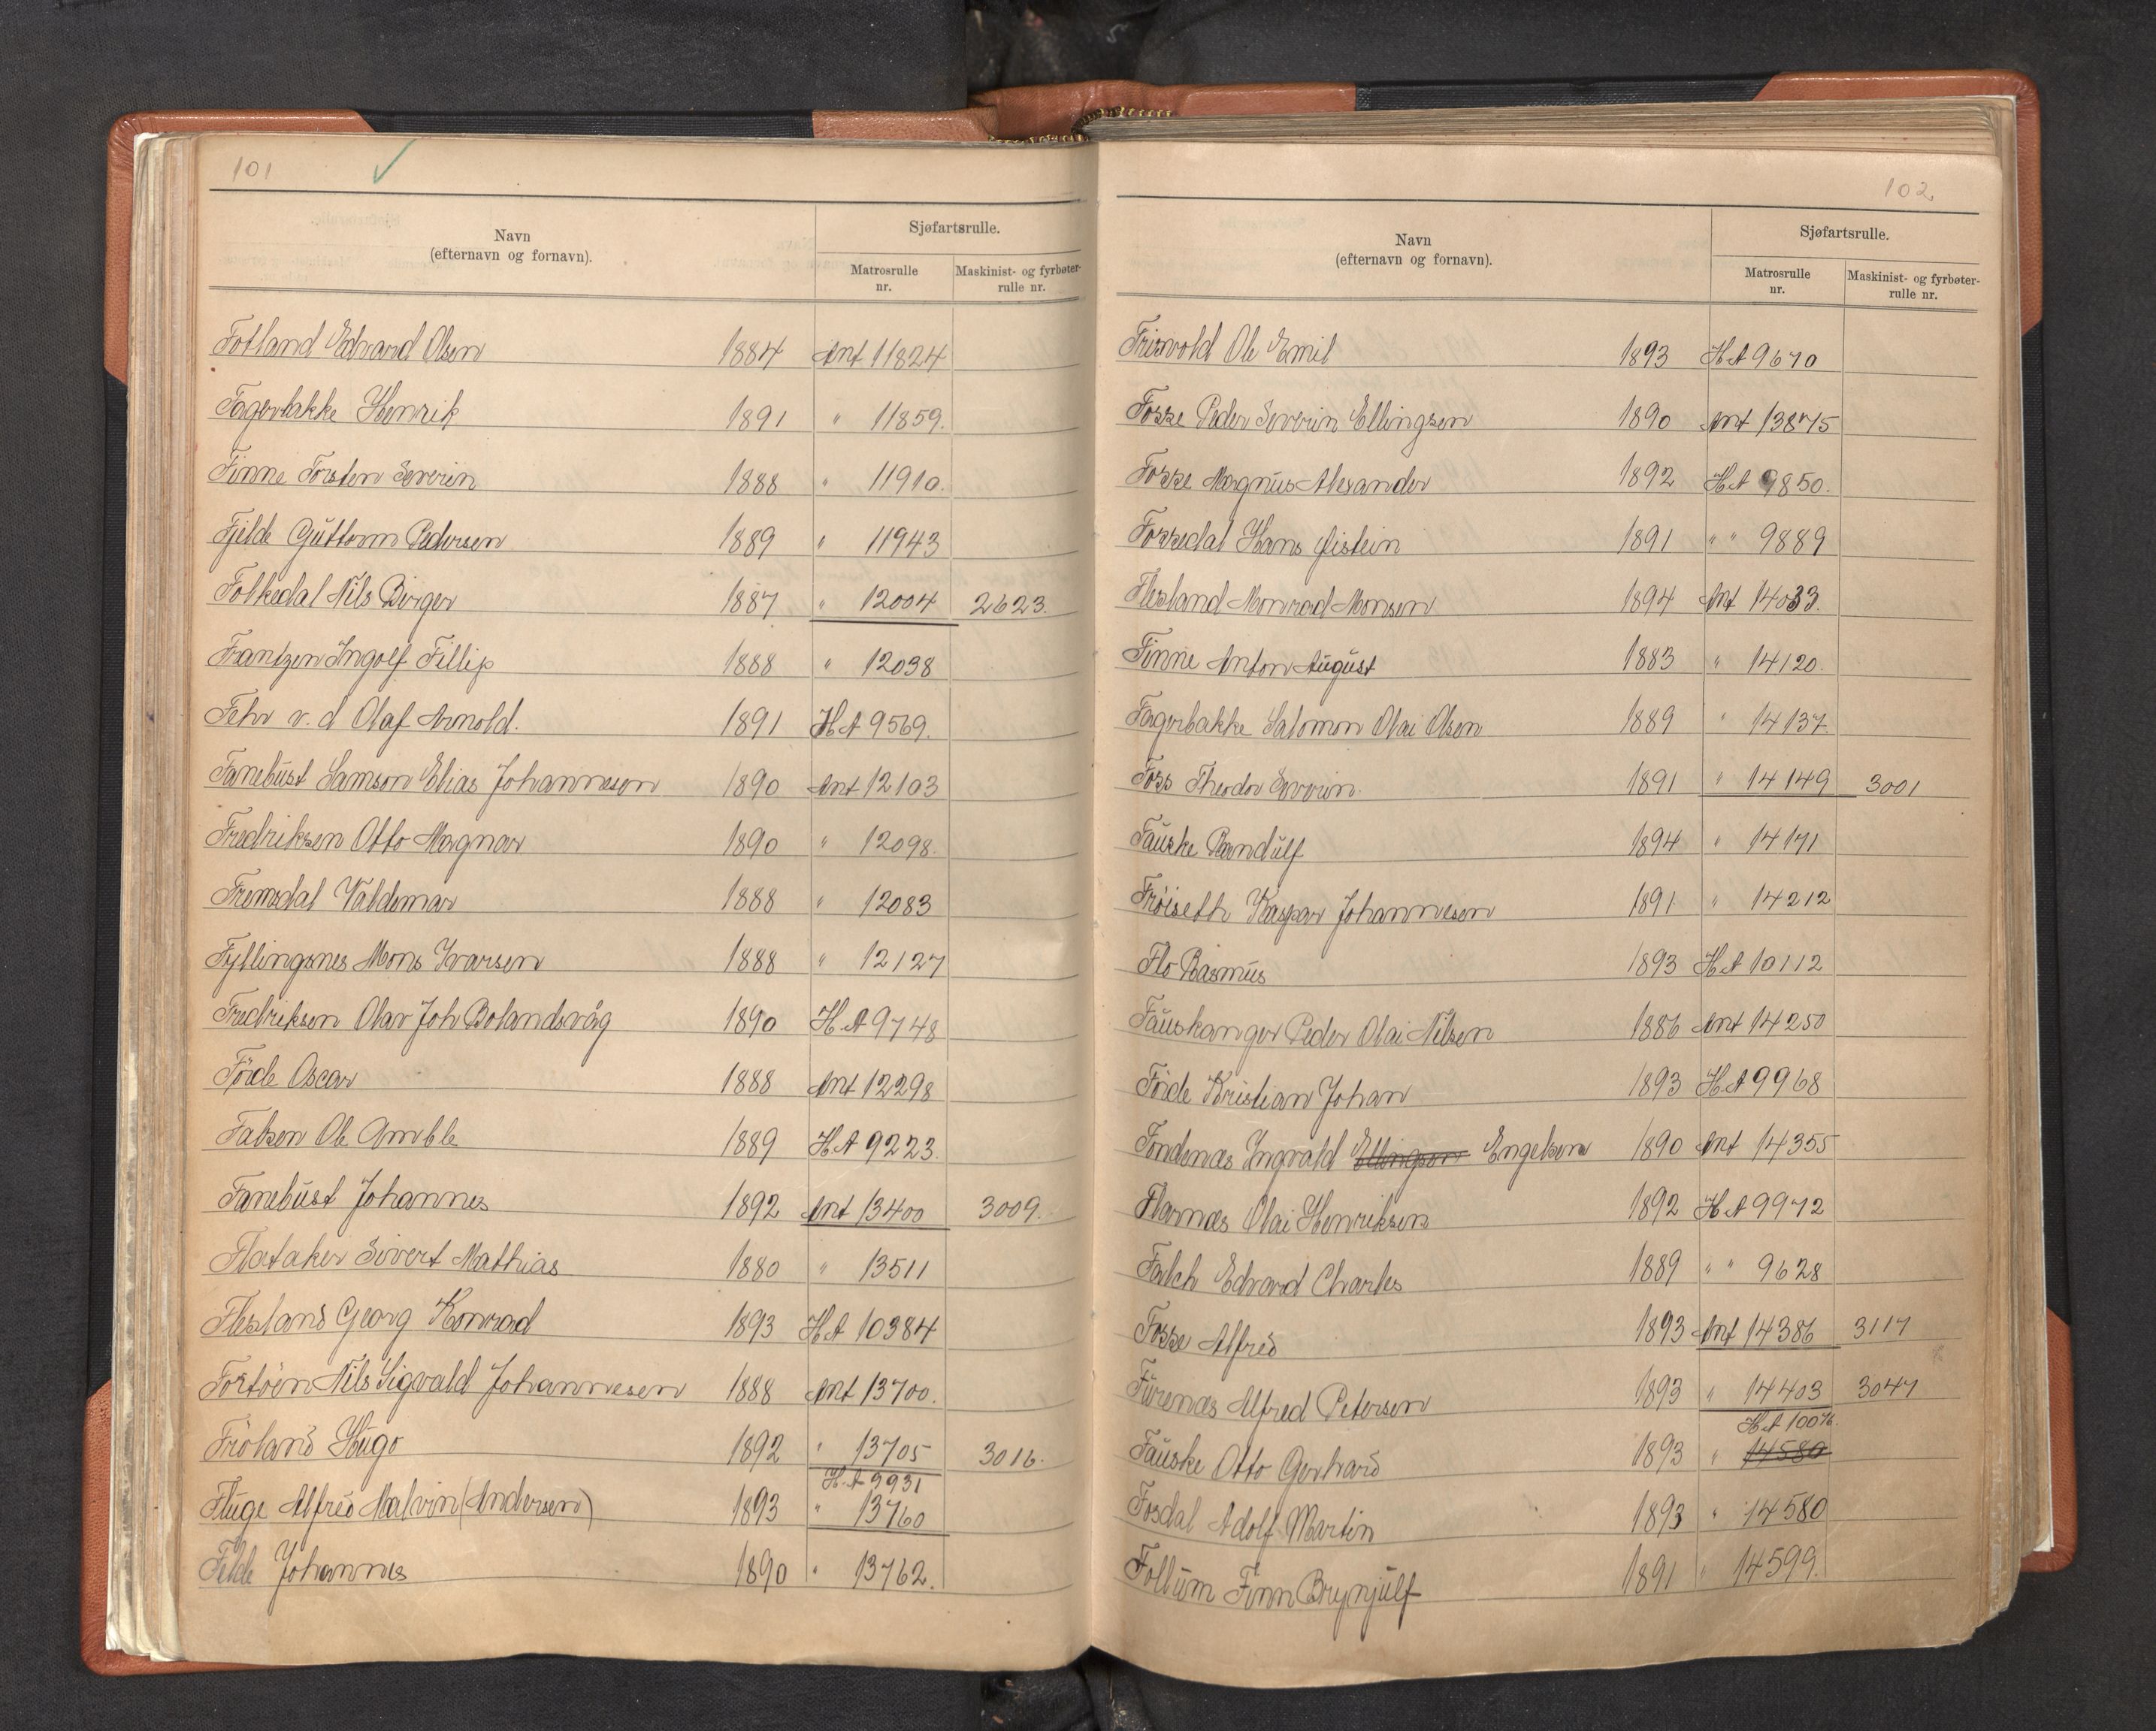 101
Navn
(efternavn og fornavn).
Sjøfartsrulle.
Matrosrulle nr.
Maskinist- og fyrbøter-rulle nr.
Fotland Edvard Olsen 1884 Ant 11824
Fagerbakke Henrik 1891 " 11859.
Finne Torsten Severin 1888 " 11910.
Fjelde Guttorm Pedersen 1889 " 11943
Folkedal Nils Birger 1887 " 12004 2623.
Frantzen Ingolf Fillip 1888 " 12038
Fehr v. d Olaf Arnold. 1891 H A 9569.
Fanebust Samson Elias Johannesen 1890 Ant 12103
Fredriksen Otto Magnar 1890 " 12098.
Fremsdal Valdemar 1888 " 12083
Fyllingsnes Mons Ivarsen 1888 " 12127
Fredriksen Olav Joh Bolandsvåg 1890 H A 9748
Förde Oscar 1888 Ant 12298
Falsen Ole Amble 1889 H A 9223.
Fanebust Johannes 1892 Ant 13400 3009.
Flataker Sivert Mathias 1880 " 13511
Flesland Georg Konrad 1893 H A 10384
Fortöen Nils Sigvald Johannesen 1888 Ant 13700.
Fröland Hugo 1892 " 13705 3016.
H. A 9931
Fluge Alfred Malvin (Andersen) 1893 " 13760
Felde Johannes 1890 " 13762.
102
Navn
(efternavn og fornavn).
Sjøfartsrulle.
Matrosrulle nr.
Maskinist- og fyrbøter-rulle nr.
Frisvold Ole Emil 1893 H A 9670
Fosse Peder Severin Ellingsen 1890 Ant 13875
Fosse Magnus Alexander 1892 H A 9850.
Fossedal Hans Øistein 1891 " " 9889
Flesland Monrad Monsen 1894 Ant 14033.
Finne Anton August 1883 " 14120.
Fagerbakke Salomon Olai Olsen 1889 " 14137.
Foss Theodor Severin. 1891 " 14149 3001
Fauske Randulf 1894 " 14171
Fröiseth Kaspar Johannesen 1891 " 14212
Flo Rasmus 1893 H A 10112
Fauskanger Peder Olai Nilsen 1886 Ant 14250
Förde Kristian Johan 1893 H A 9968
Fondenæs Ingvald Ellingsen Engelsen 1890 Ant 14355
Flornæs Olai Henriksen 1892 H A 9972
Falch Edvard Charles 1889 " " 9628
Fosse Alfred 1893 Ant 14386 3117
Furenæs Alfred Petersen 1893 " 14403 3047
H A 10076.
Fauske Otto Gerhard 1893 " 14580
Fosdal Adolf Martin 1893 " 14580
Follum Finn Brynjulf 1891 " 14599.